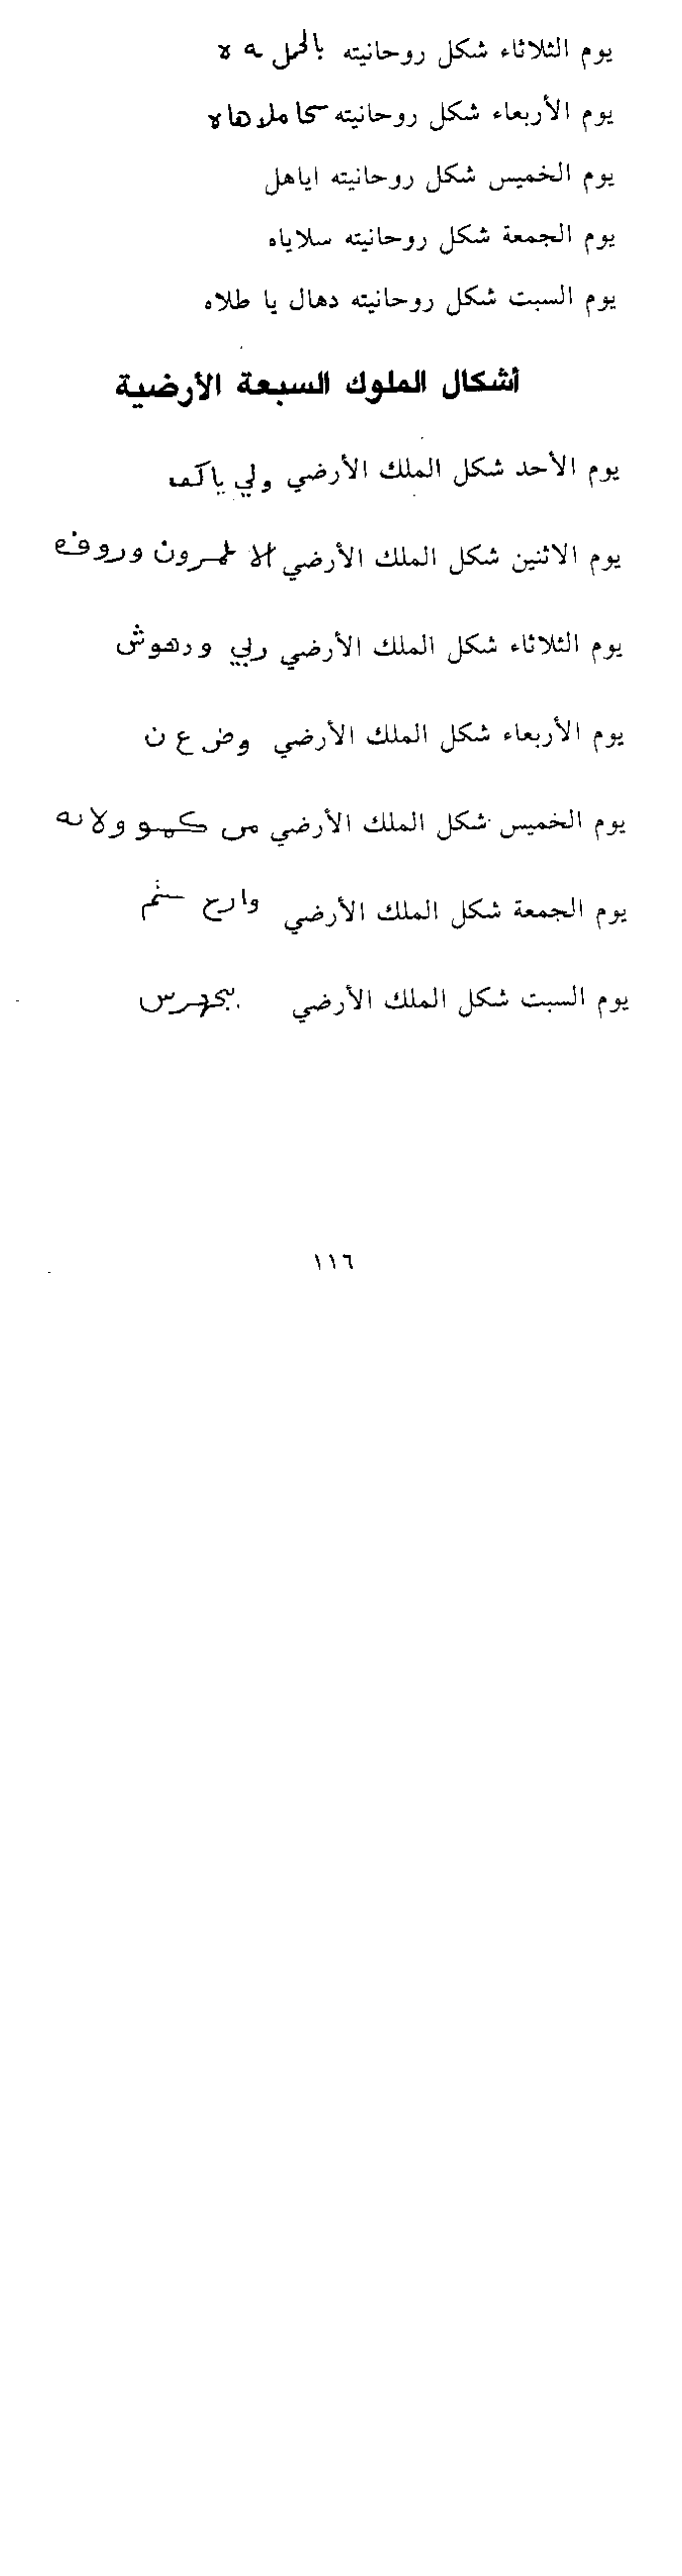 يوم الثلاثاء شكل روحانيته
يوم الأربعاء شكل روحانيته
يوم الخميس شكل روحانيته اياهل
يوم الجمعة شكل روحانيته سلاياه
يوم السبت شكل روحانيته دهال يا طلاه
أشكال الملوك السبعة الأرضية
يوم الأحد شكل الملك الأرضي ولي
يوم الاثنين شكل الملك الأرضي
يوم الثلاثاء شكل الملك الأرضي ربي ودهوش
يوم الأربعاء شكل الملك الأرضي وض ع ن
يوم الخميس شكل الملك الأرضي
يوم الجمعة شكل الملك الأرضي
يوم السبت شكل الملك الأرضي
١١٦